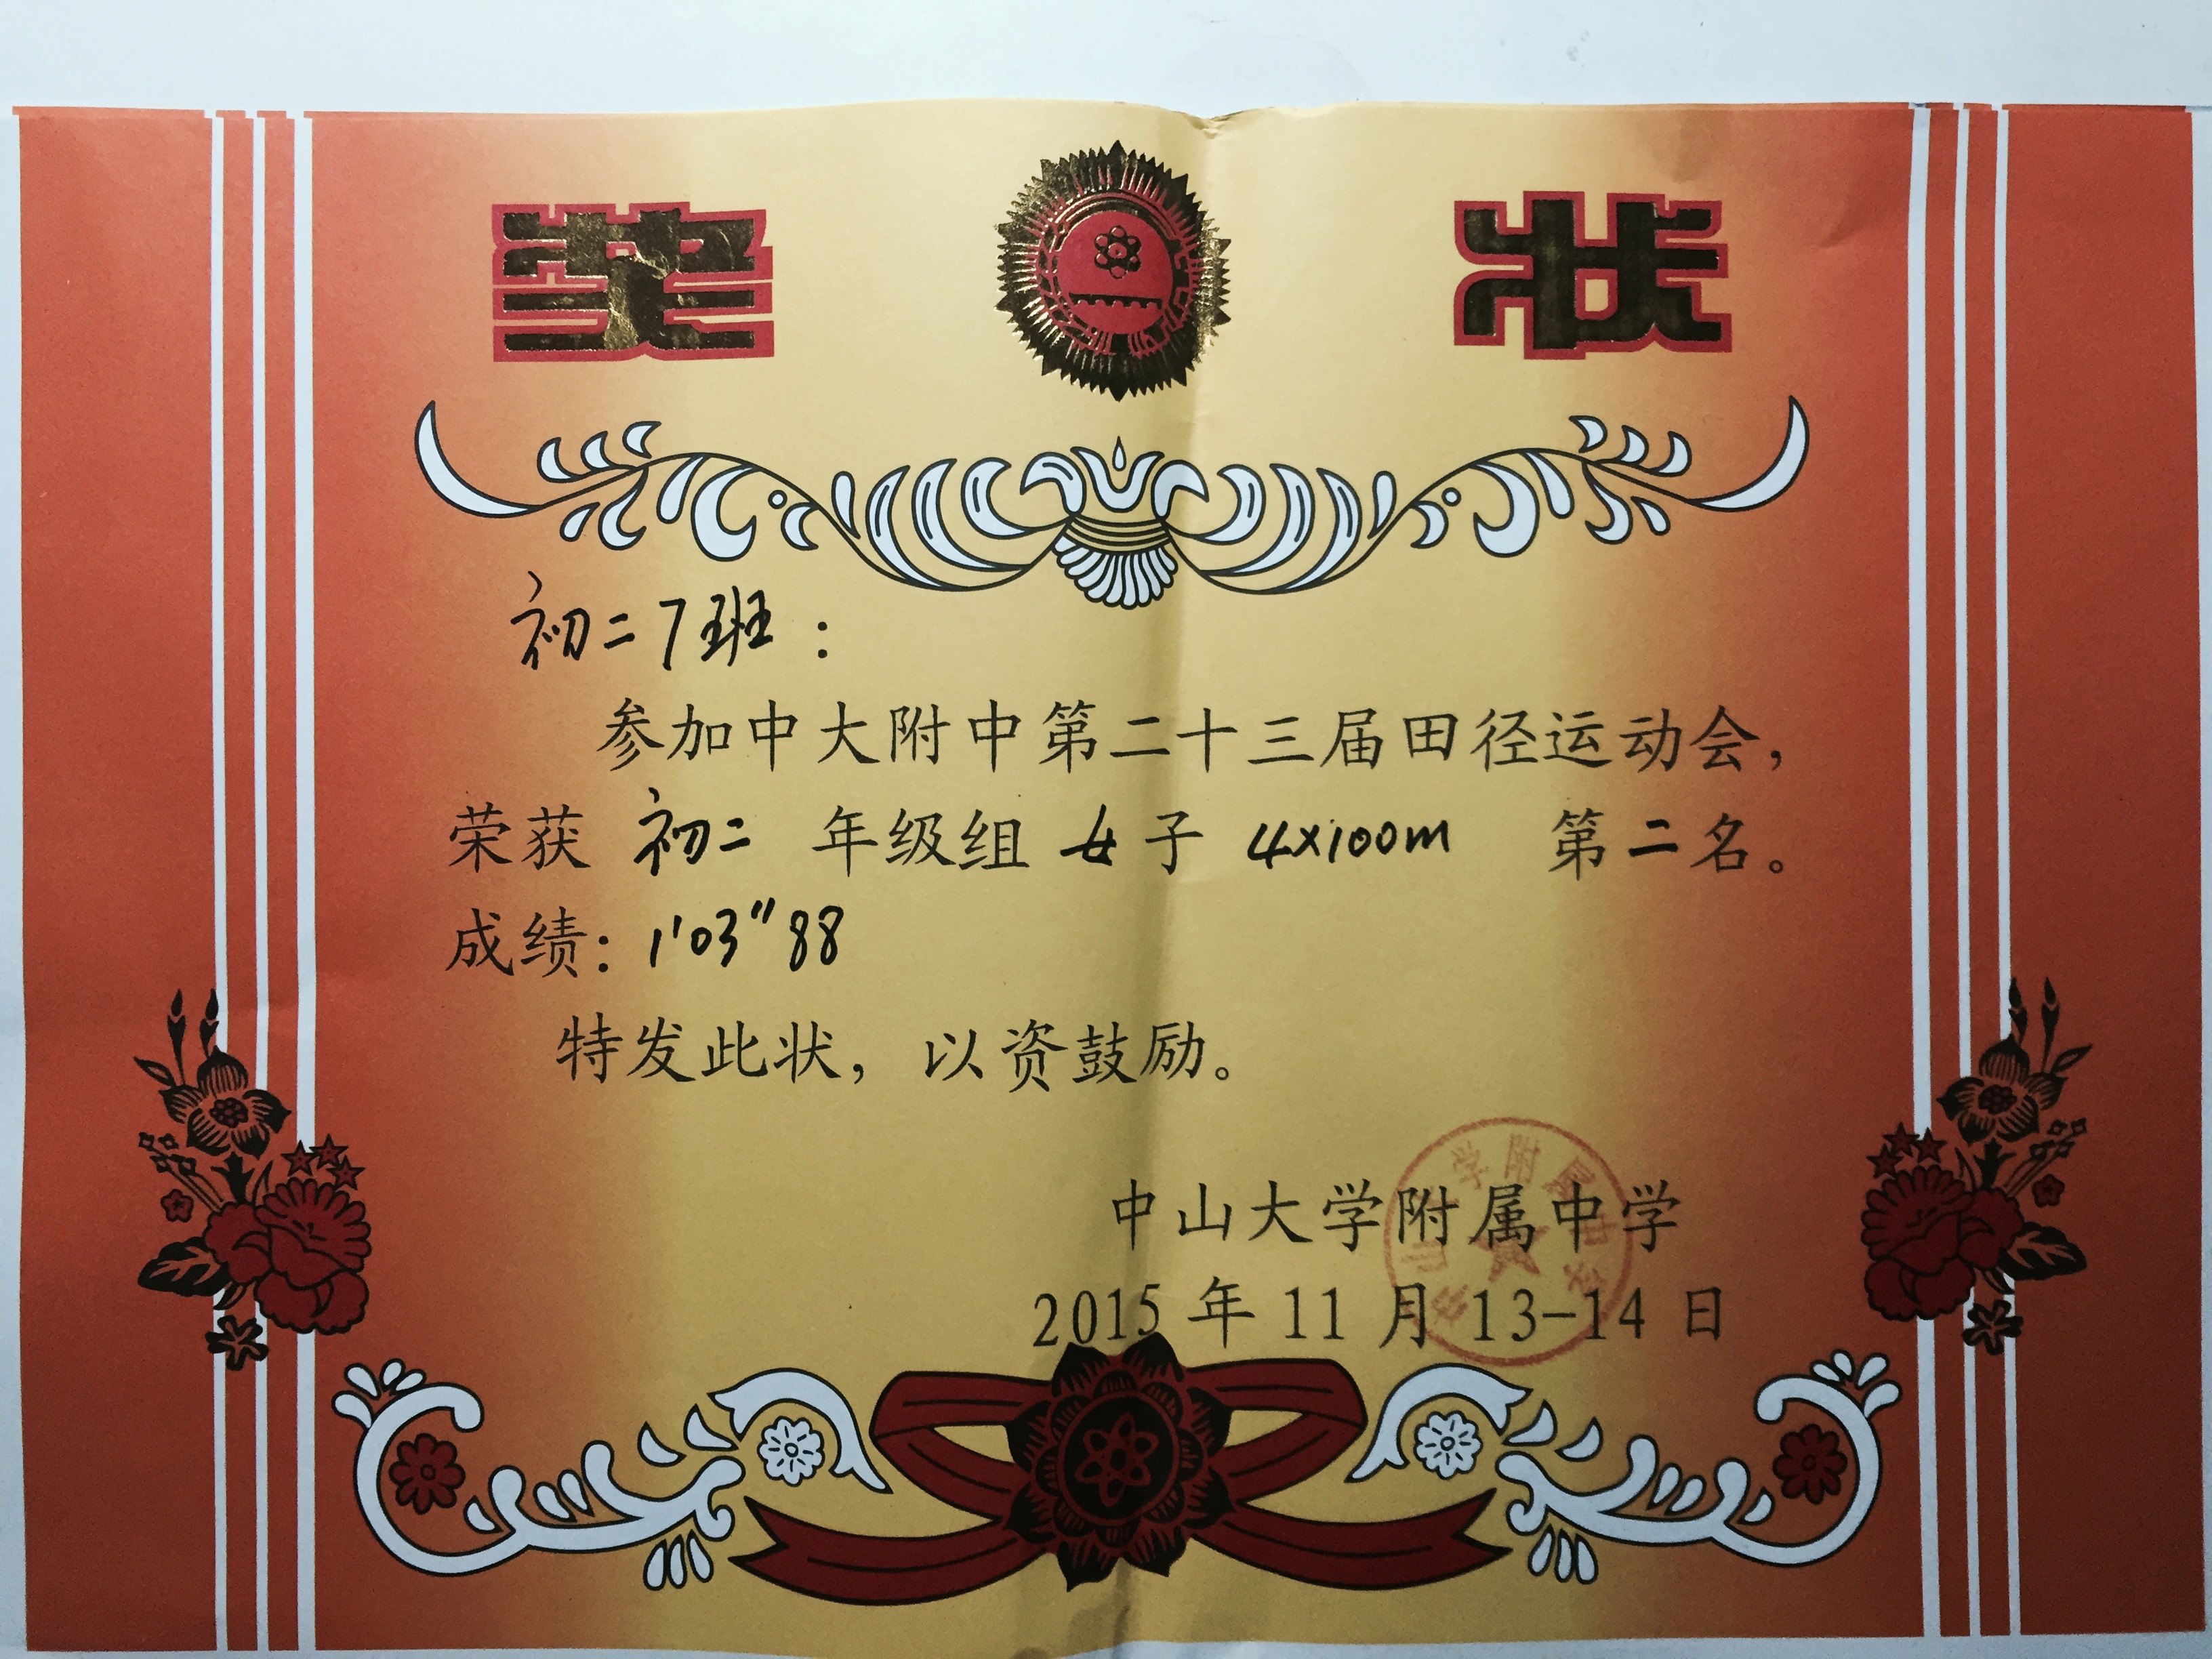 奖 状
初二7班：
参加中大附中第二十三届田径运动会，
荣获 初二 年级组 女子 4×100m 第二名。
成绩：1'03"88
特发此状，以资鼓励。
中山大学附属中学
2015 年 11 月 13-14 日
中山大学附属中学